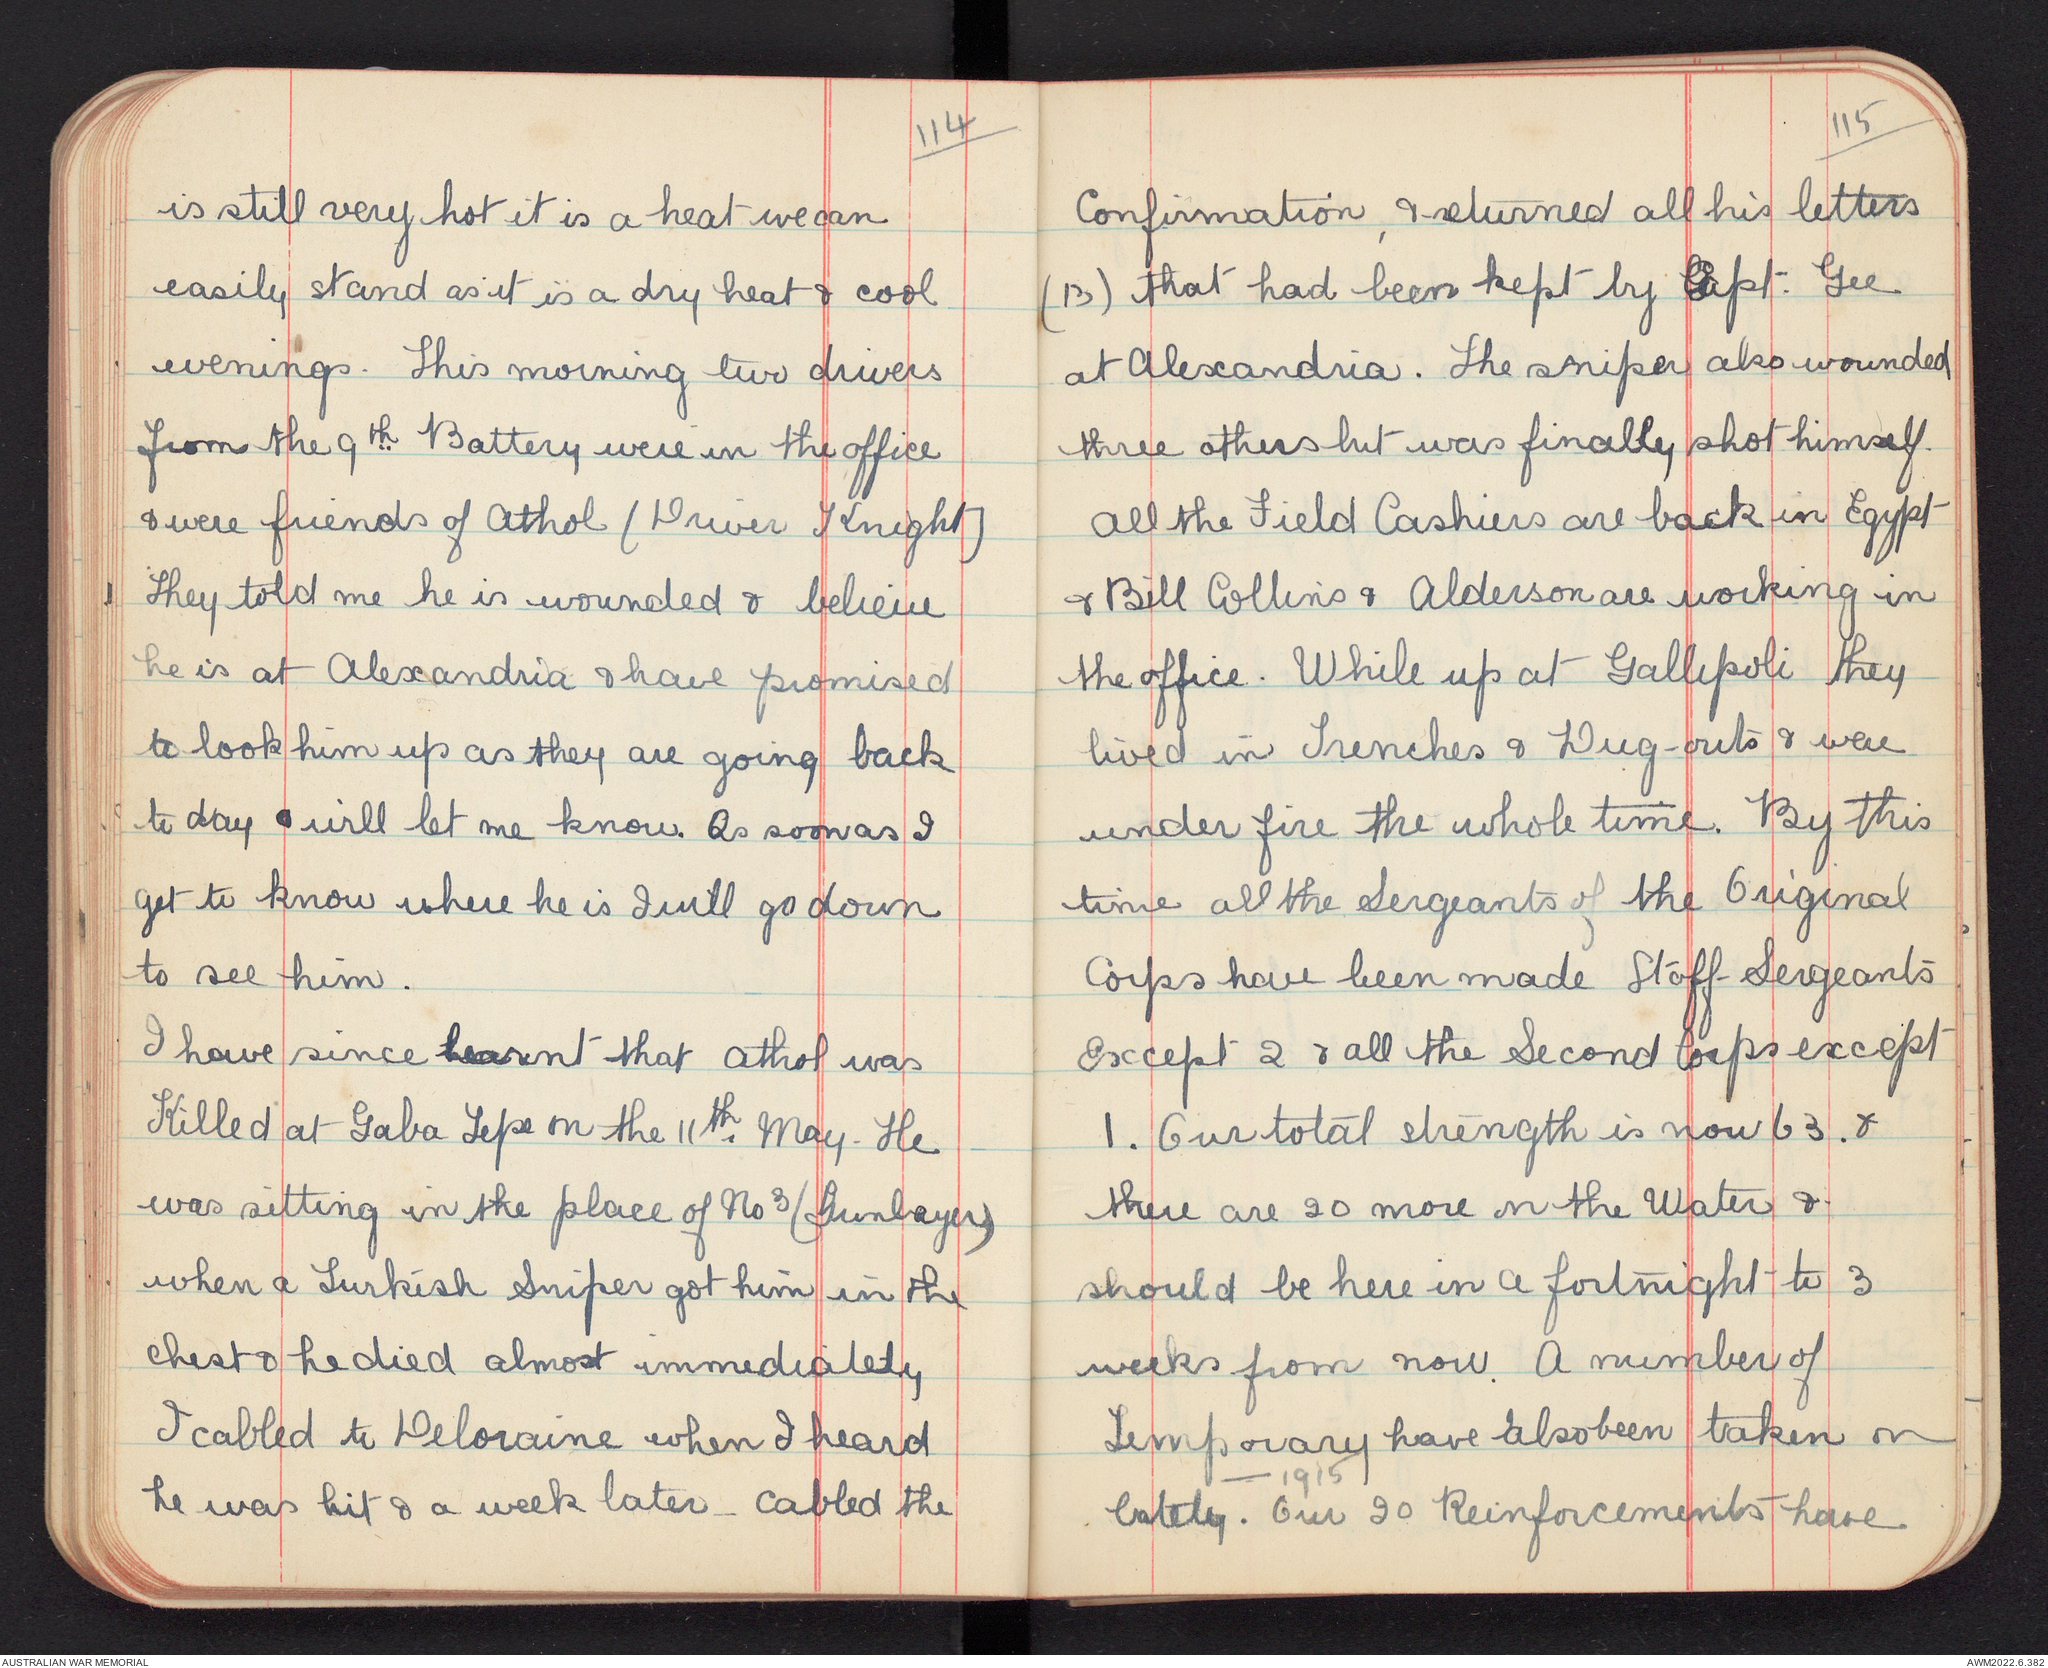 114
is still very hot it is a heat we can
easily stand as it is a dry heat & cool
evenings. This morning two drivers
from the 9th Battery were in the office
& were friends of Athol (Driver Knight)
They told me he is wounded & believe
he is at Alexandria & have promised
to look him up as they are going back
to day & will let me know. As soon as I
get to know where he is I will go down
to see him.
I have since learnt that Athol was
Killed at Gaba Tepe on the 11th. May. He
was sitting in the place of No 3 (Gunlayer)
when a Turkish Sniper got him in the
chest & he died almost immediately
I cabled to Deloraine when I heard
he was hit & a week later - cabled the
115
Confirmation, & returned all his letters
(B) that had been kept by Capt. Gee
at Alexandria. The sniper also wounded
three others but was finally shot himself.
All the Field Cashiers are back in Egypt
& Bill Collins & Alderson are working in
the office. While up at Gallipoli they
lived in Trenches & Dug-outs & were
under fire the whole time. By this
time all the Sergeants of the Original
Corps have been made Staff-Sergeants
Except 2 & all the Second Corps except
1. Our total strength is now 63. &
there are 20 more on the Water &
should be here in a fortnight to 3
weeks from now. A number of
Temporary have also been taken on
— 1915
lately. Our 20 Reinforcements have
AUSTRALIAN WAR MEMORIAL
AWM2022.6.382